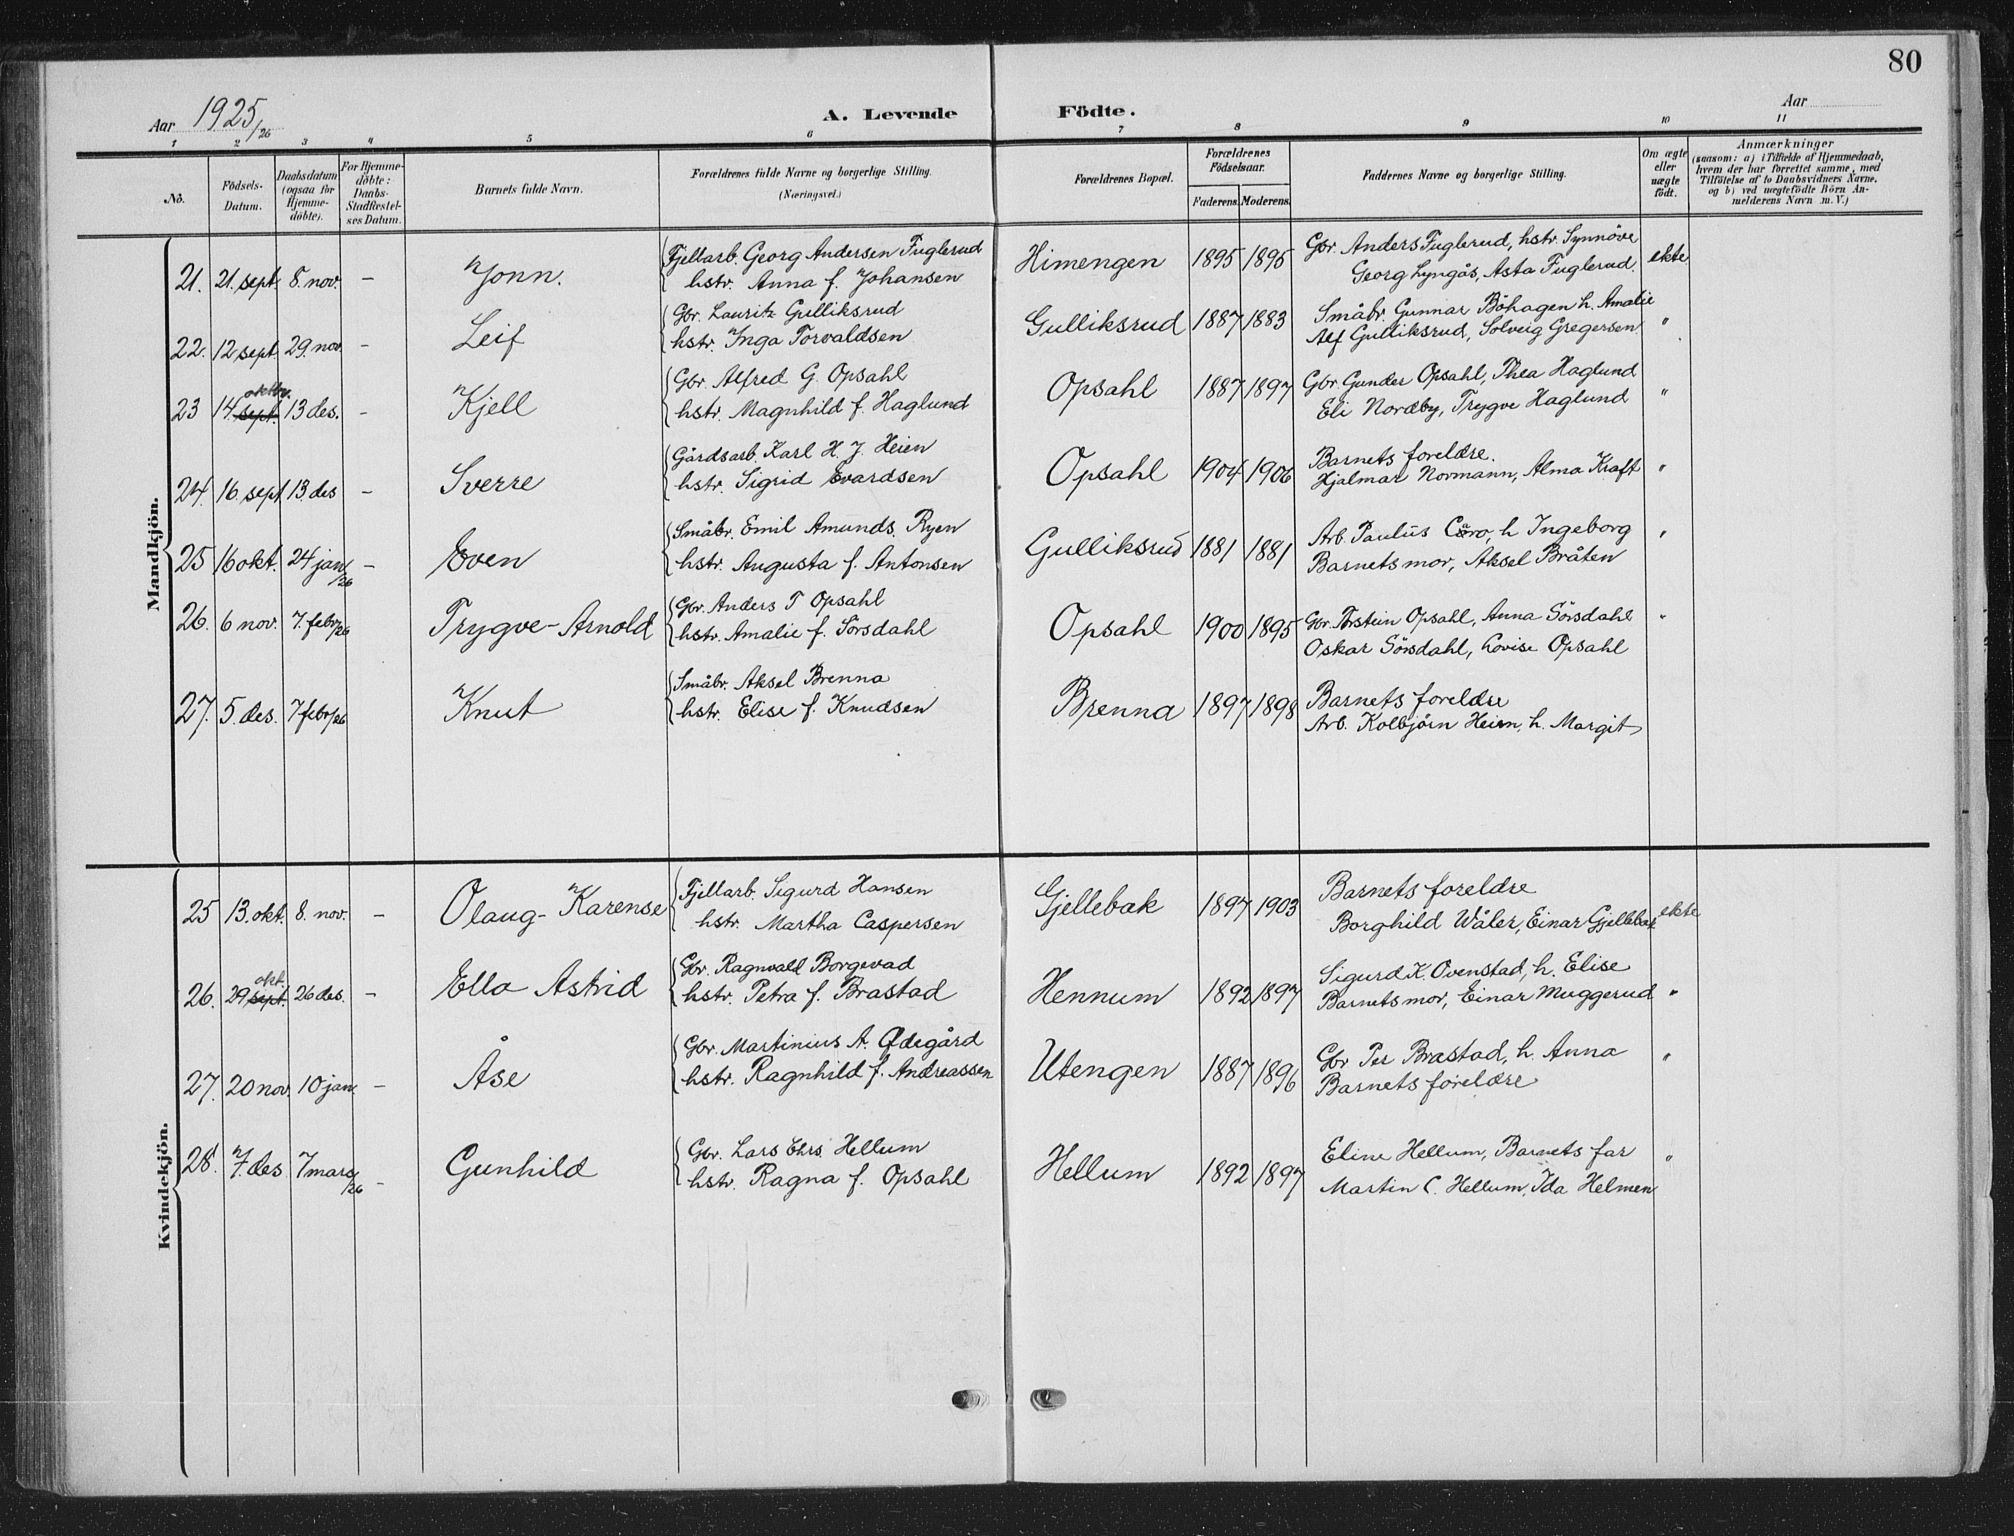 80
Aar 1925/26
A. Levende Födte.
Aar
1 2 3 4 5 6 7 8 9 10 11
No.
Födsels-Datum.
Daabsdatum (ogsaa for Hjemme-döbte).
For Hjemme-döbte: Daabs-Stadfæstel-ses Datum.
Barnets fulde Navn.
Forældrenes fulde Navne og borgerlige Stilling.
(Næringsvei.)
Forældrenes Bopæl.
Forældrenes Födselsaar.
Faderens. Moderens.
Faddernes Navne og borgerlige Stilling.
Om ægte eller uægte födt.
Anmærkninger
(saasom: a) i Tilfælde af Hjemmedaab, hvem der har forrettet samme, med Tilföielse af to Daabsvidners Navne, og b) ved uægtefödte Börn An-melderens Navn m. V.)
Mandkjön.
21. 21. sept. 8. nov. – Jonn. Fjellarb. Georg Andersen Fuglerud Himengen 1895 1895 Gbr. Anders Fuglerud, hstr. Synnöve ekte
hstr. Anna f. Johansen Georg Lyngås, Asta Fuglerud.
22. 12 sept. 29. nov. – Leif Gbr. Lauritz Gulliksrud Gulliksrud 1887 1883 Småbr. Gunnar Böhagen h. Amalie "
hstr. Inga Torvaldsen Alf Gulliksrud, Solveig Gregersen
23 14. sept. oktbr. 13 des. – Kjell Gbr. Alfred G. Opsahl Opsahl 1887 1897 Gbr Gunder Opsahl, Thea Haglund "
hstr. Magnhild f. Haglund Eli Nordby, Trygve Haglund
24. 16 sept 13. des – Sverre Gårdsarb. Karl H. J. Heien Opsahl 1904 1906 Barnets foreldre. "
hstr. Sigrid Evardsen Hjalmar Normann, Alma Kraft
25 16 okt. 24 jan/26 – Even Småbr. Emil Amunds. Ryen Gulliksrud 1881 1881 Arb. Paulus h Ingeborg "
hstr. Augusta f. Antonsen Barnets mor, Aksel Bråten
26. 6 nov. 7. febr/26 Trygve-Arnold Gbr. Anders T Opsahl Opsahl 1900 1895 Gbr. Torstein Opsahl, Anna Sörsdahl "
hstr. Amalie f. Sörsdahl Oskar Sörsdahl, Lovise Opsahl
27. 5 des. 7 febr/26 Knut Småbr. Aksel Brenna Brenna 1897 1898 Barnets foreldre
hstr. Elise f. Knudsen Arb. Kolbjörn Heien, h. Margit
Kvindekjön.
25 13. okt. 8. nov. – Olaug-Karense Fjellarb. Sigurd Hansen Gjellebæk 1897 1903 Barnets foreldre ekte
hstr. Martha Caspersen Borghild Wåler, Einar Gjellebæk
26. 29 sept. okt. 26 des. – Ella Astrid Gbr. Ragnvald Borgevad Hennum 1892 1897 Sigurd K. Ovenstad, h. Elise "
hstr. Petra f. Brastad Barnets mor, Einar Muggerud
27. 20 nov. 10 jan. – Åse Gbr. Martinius A. Ødegård Utengen 1887 1896 Gbr Per Brastad, h. Anna "
hstr. Ragnhild f. Andreassen Barnets foreldre
28. 7. des 7 mars/26 – Gunhild Gbr. Lars Chrs. Hellum Hellum 1892 1897 Eline Hellum, Barnets far "
hstr. Ragna f. Opsahl Martin C. Hellum, Ida Helmen